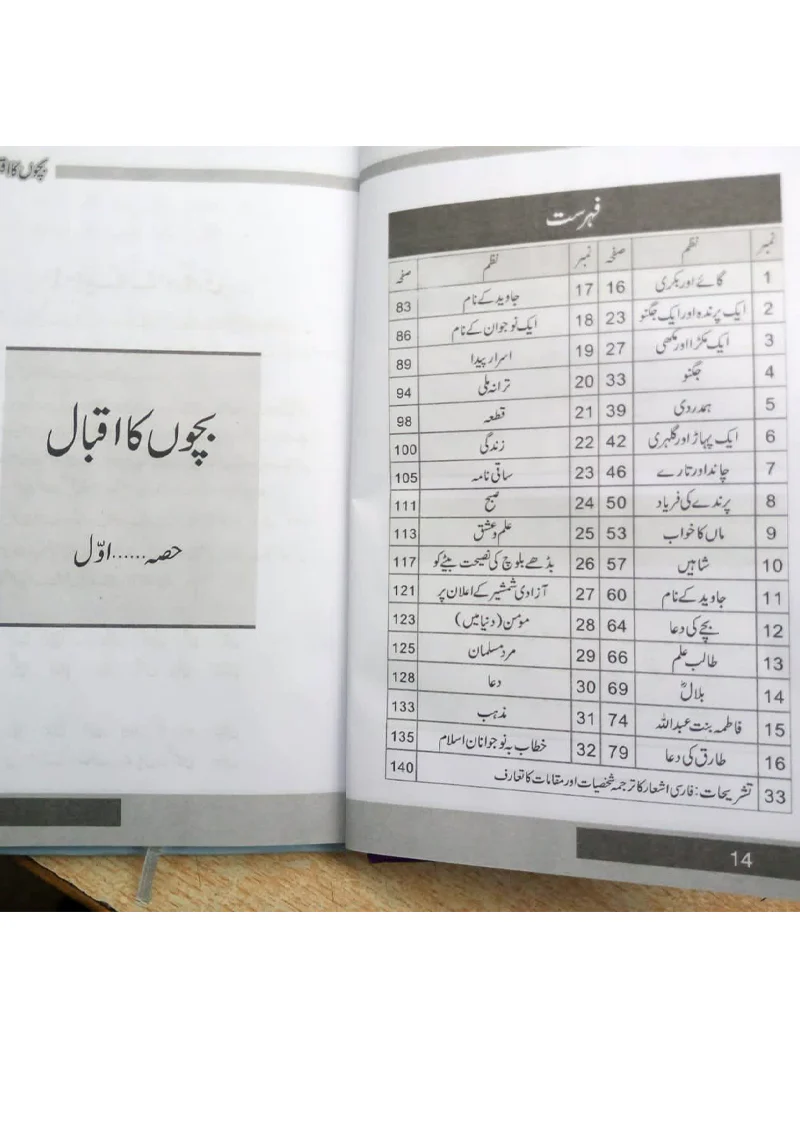 بچوں کا
فہرست
نمبر نظم صفحہ نمبر نظم صفحہ
1 گائے اور بکری 16 17 جاوید کے نام 83
2 ایک پرندہ اور ایک جگنو 23 18 ایک نوجوان کے نام 86
3 ایک مکڑا اور مکھی 27 19 اسرار پیدا 89
4 جگنو 33 20 ترانہ ملی 94
5 ہمدردی 39 21 قطعہ 98
6 ایک پہاڑ اور گلہری 42 22 زندگی 100
7 چاند اور تارے 46 23 ساقی نامہ 105
8 پرندے کی فریاد 50 24 صبح 111
9 ماں کا خواب 53 25 علم و عشق 113
10 شاہیں 57 26 بڈھے بلوچ کی نصیحت بیٹے کو 117
11 جاوید کے نام 60 27 آزادی شمشیر کے اعلان پر 121
12 بچے کی دعا 64 28 مومن (دنیا میں) 123
13 طالب علم 66 29 مرد مسلمان 125
14 بلالؓ 69 30 دعا 128
15 فاطمہ بنت عبداللہ 74 31 مذہب 133
16 طارق کی دعا 79 32 خطاب بہ نوجوانان اسلام 135
33 تشریحات: فارسی اشعار کا ترجمہ شخصیات اور مقامات کا تعارف 140
14
بچوں کا اقبال
حصہ......اوّل